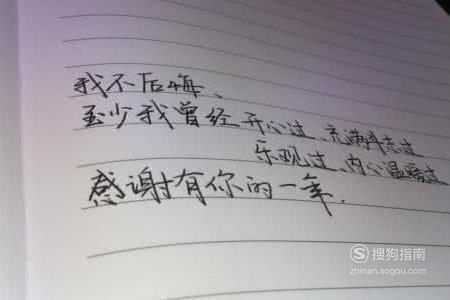 我不后悔、
至少我曾经开心过、充满斗志过
乐观过、内心温暖过
感谢有你的一年.
搜狗指南
zhinan.sogou.com